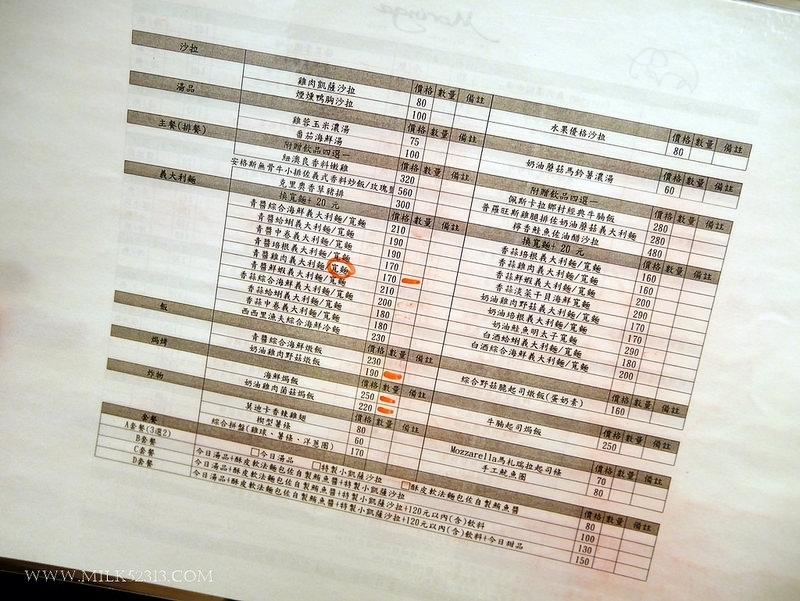 沙拉 價格 數量 備註
雞肉凱薩沙拉 80
煙燻鴨胸沙拉 100
水果優格沙拉 80
湯品 價格 數量 備註
雞蓉玉米濃湯 75
番茄海鮮湯 100
奶油蘑菇馬鈴薯濃湯 60
主餐(排餐) 附贈飲品四選一 價格 數量 備註
紐澳良香料嫩雞 320
安格斯無骨牛小排佐義式香料炒飯/玫瑰 560
克里奧香草豬排 300
佩斯卡拉鄉村經典牛腩飯 280
普羅旺斯雞腿排佐奶油蘑菇義大利麵 280
檸香鮭魚佐油醋沙拉 480
義大利麵 換寬麵+20元 價格 數量 備註
青醬綜合海鮮義大利麵/寬麵 210
青醬蛤蜊義大利麵/寬麵 190
青醬中卷義大利麵/寬麵 190
青醬培根義大利麵/寬麵 170
青醬雞肉義大利麵/寬麵 170
青醬鮮蝦義大利麵/寬麵 210
香蒜綜合海鮮義大利麵/寬麵 200
香蒜蛤蜊義大利麵/寬麵 180
香蒜中卷義大利麵/寬麵 180
西西里漁夫綜合海鮮冷麵 230
換寬麵+20元 價格 數量 備註
香蒜培根義大利麵/寬麵 160
香蒜雞肉義大利麵/寬麵 160
香蒜鮮蝦義大利麵/寬麵 200
香蒜淡菜干貝海鮮寬麵 290
奶油雞肉野菇義大利麵/寬麵 170
奶油培根義大利麵/寬麵 170
奶油鮭魚明太子寬麵 290
白酒蛤蜊義大利麵/寬麵 180
白酒綜合海鮮義大利麵/寬麵 200
飯 價格 數量 備註
青醬綜合海鮮燉飯 230
奶油雞肉野菇燉飯 190
綜合野菇脆起司燉飯(蛋奶素) 160
焗烤 價格 數量 備註
海鮮焗飯 250
奶油雞肉菌菇焗飯 220
牛腩起司焗飯 250
炸物 價格 數量 備註
莫迪卡香辣雞翅 80
楔型薯條 60
綜合拼盤(雞球、薯條、洋蔥圈) 170
Mozzarella馬札瑞拉起司條 70
手工魷魚圈 80
套餐 價格 數量 備註
A套餐(3選2) □今日湯品 □特製小凱薩沙拉 □酥皮軟法麵包佐自製鮪魚醬 80
B套餐 今日湯品+酥皮軟法麵包佐自製鮪魚醬+特製小凱薩沙拉 100
C套餐 今日湯品+酥皮軟法麵包佐自製鮪魚醬+特製小凱薩沙拉+120元以內(含)飲料 130
D套餐 今日湯品+酥皮軟法麵包佐自製鮪魚醬+特製小凱薩沙拉+120元以內(含)飲料+今日甜品 150
WWW.MILK52313.COM